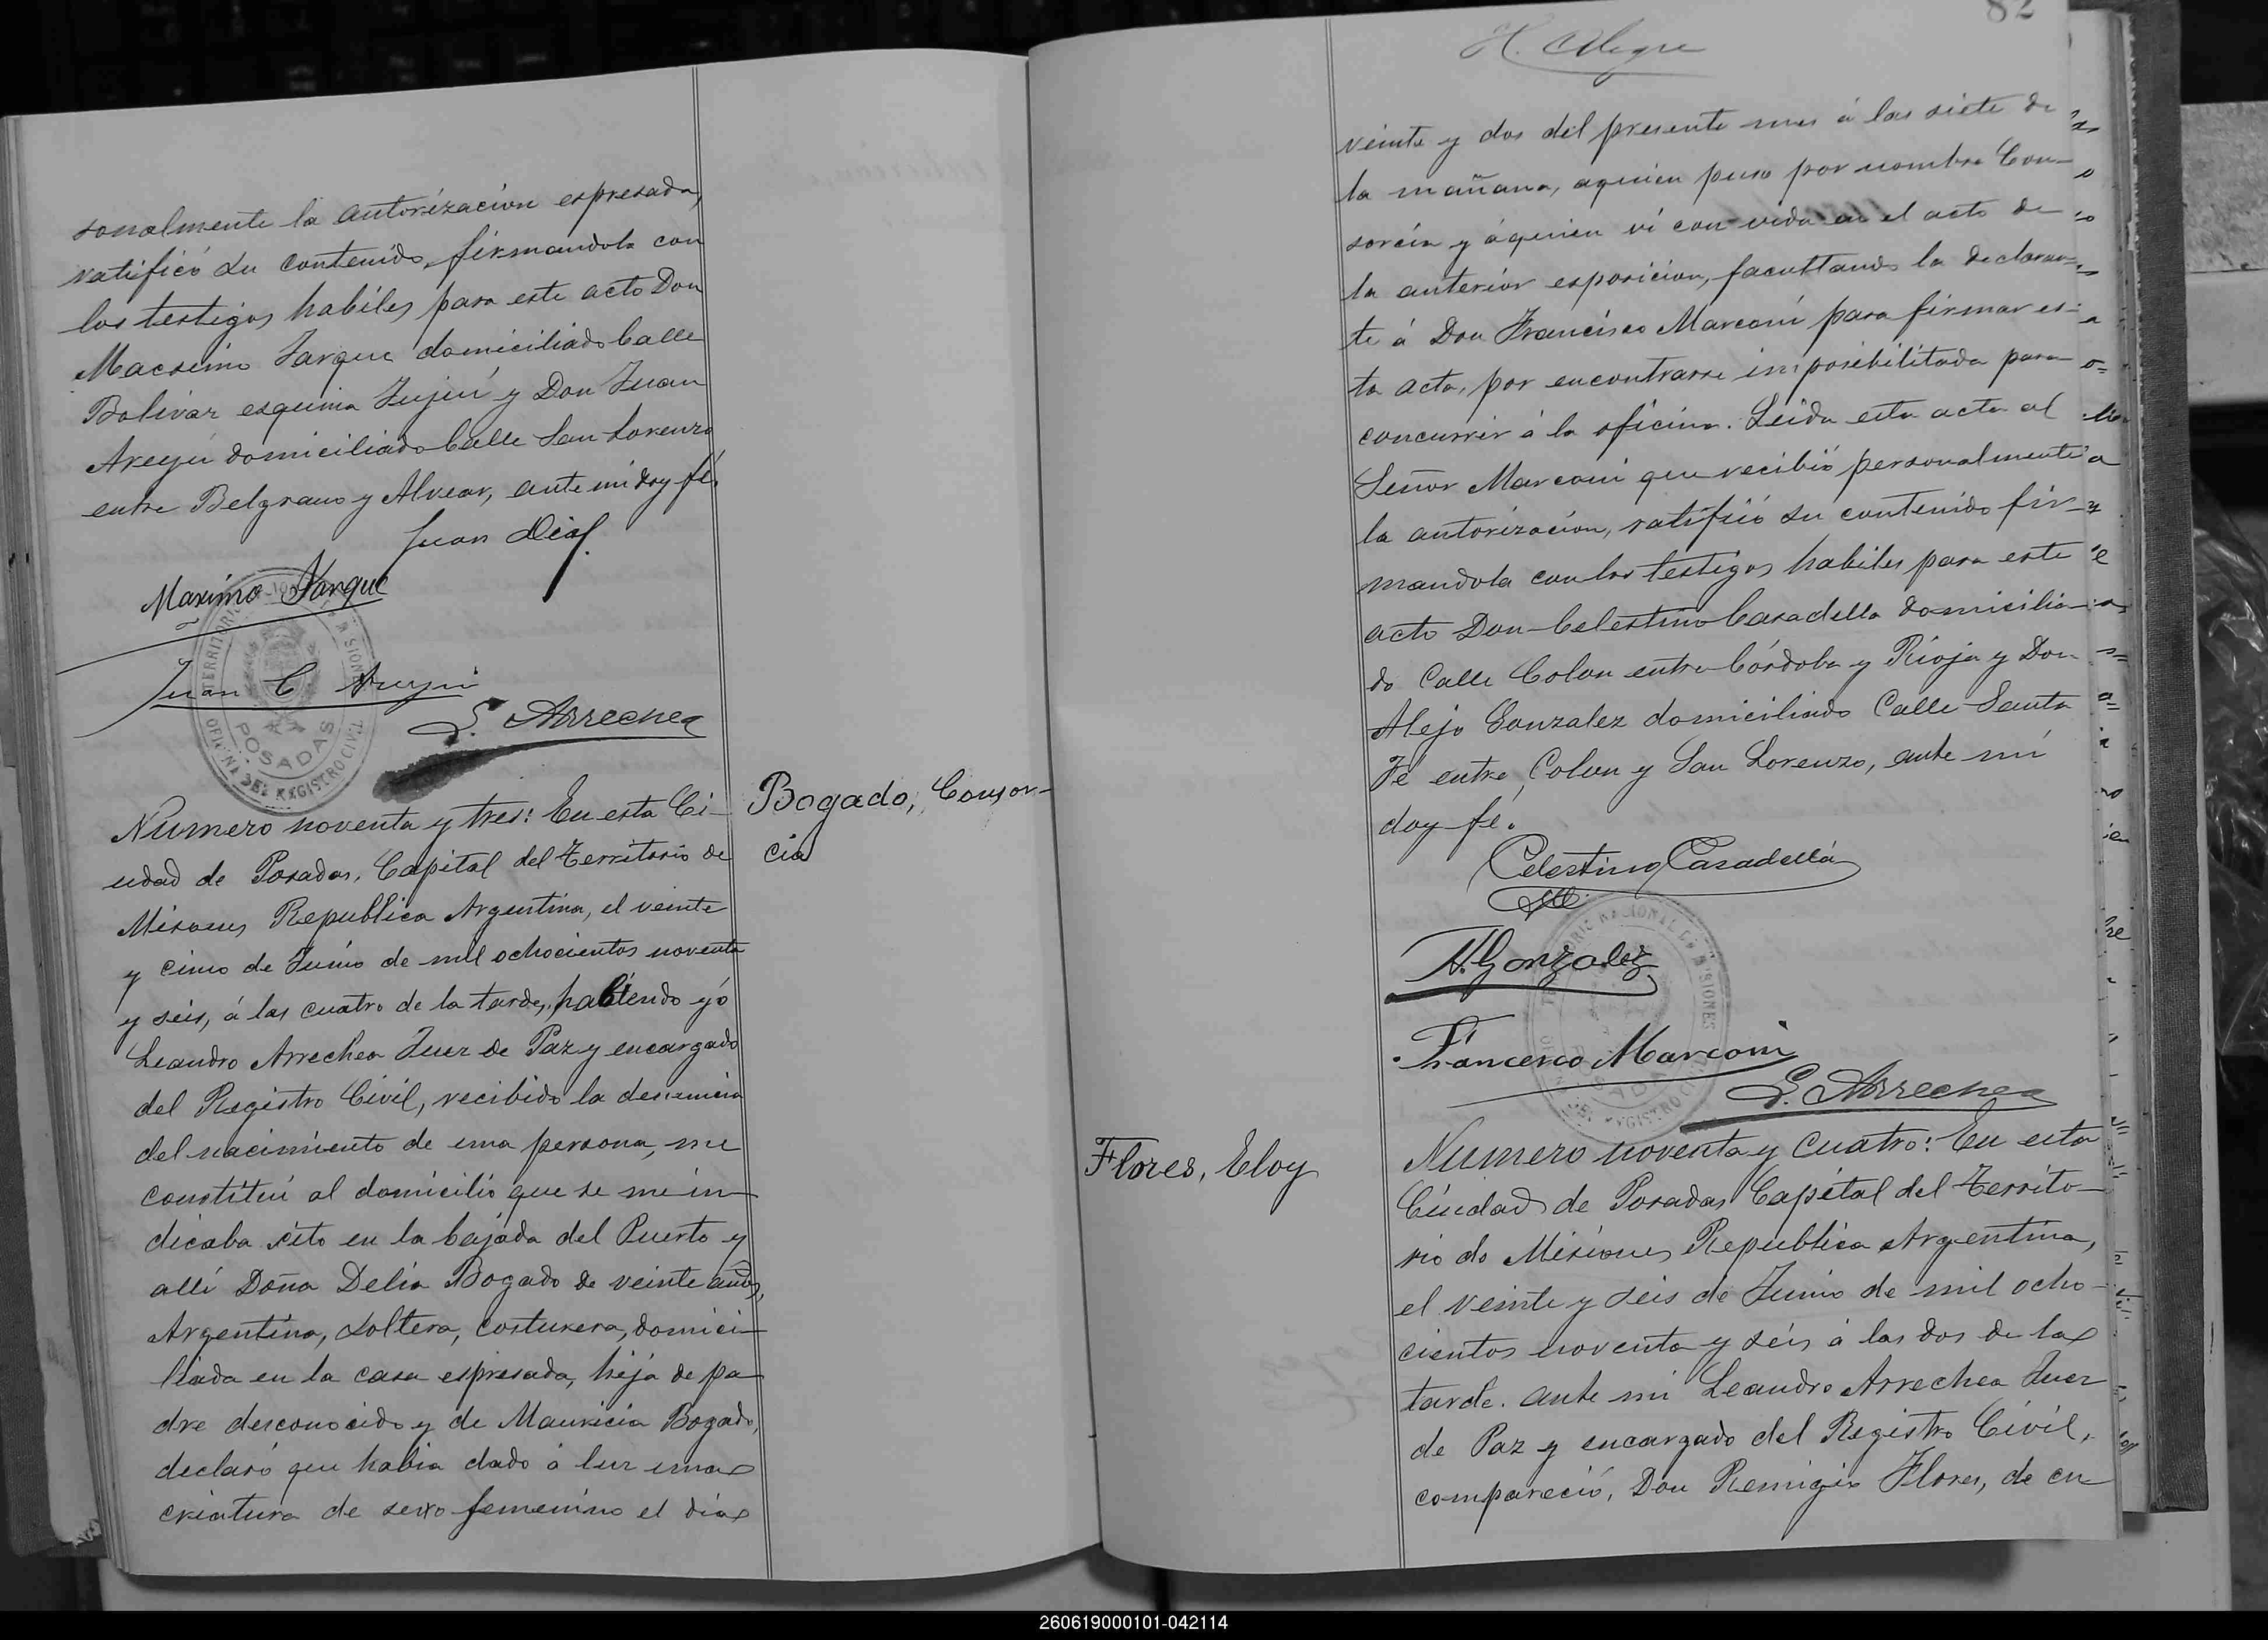 sonalmente la autorización espresada,
ratificó su contenido, firmandola con
los testigos habiles para este acto Don
Macsimo Jarque domiciliado Calle
Bolivar esquina Jujuí y Don Juan
Areyú domiciliado Calle San Lorenzo
entre Belgrano y Alvear, ante mi doy fé.
Juan Dias
Maximo Jarque
Juan C Areyú
L. Arrechea
TERRITORIO NACIONAL DE MISIONES
POSADAS
OFICINA DEL REGISTRO CIVIL
Numero noventa y tres: En esta Ci-
udad de Posadas, Capital del Territorio de
Misiones Republica Argentina, el veinte
y cinco de Junio de mil ochocientos noventa
y seis, á las cuatro de la tarde, habiendo yó
Leandro Arrechea Juez de Paz y encargado
del Registro Civil, recibido la denuncia
del nacimiento de una persona, me
constituí al domicilio que se me in-
dicaba sito en la bajada del Puerto y
allí Doña Delia Bogado de veinte años,
Argentina, soltera, costurera, domici-
liada en la casa espresada, hija de pa-
dre desconocido y de Mauricia Bogado,
declaró que habia dado á luz una
criatura de sexo femenino el día
Bogado, Consor-
cia
82
H. Alegre
veinte y dos del presente mes á las siete de
la mañana, aquien puso por nombre Con-
sorcia y áquien ví con vida en el acto de
la anterior esposicion, facultando la declaran-
te á Don Francisco Marconi para firmar es-
ta acta, por encontrarse imposibilitada para
concurrir á la oficina. Leida esta acta al
Señor Marconi que recibió personalmente
la autorización, ratifició su contenido fir-
mandola con los testigos habiles para este
acto Don Celestino Casadella domicilia-
do Calle Colon entre Córdoba y Rioja y Don
Alejo Gonzalez domiciliado Calle Santa
Fé entre Colon y San Lorenzo, ante mí
doy fé.
Celestino Casadellá
A. Gonzalez
Francesco Marconi
L. Arrechea
Flores, Eloy
Numero noventa y cuatro: En esta
Ciudad de Posadas Capital del Territo-
rio de Misiones Republica Argentina,
el veinte y seis de Junio de mil ocho-
cientos noventa y seis á las dos de la
tarde. ante mi Leandro Arrechea Juez
de Paz y encargado del Registro Civil,
compareció, Don Remigio Flores, de cu
260619000101-042114